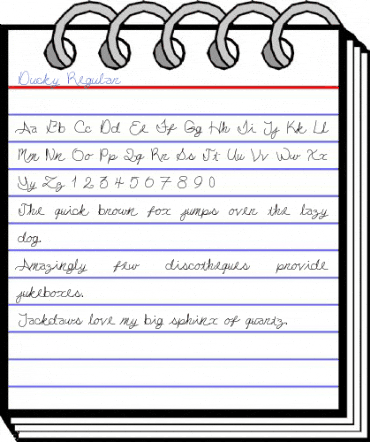 Ducky Regular
Aa Bb Cc Dd Ee Ff Gg Hh Ii Jj Kk Ll
Mm Nn Oo Pp Qq Rr Ss Tt Uu Vv Ww Xx
Yy Zz 1 2 3 4 5 6 7 8 9 0
The quick brown fox jumps over the lazy
dog.
Amazingly few discotheques provide
jukeboxes.
Jackdaws love my big sphinx of quartz.